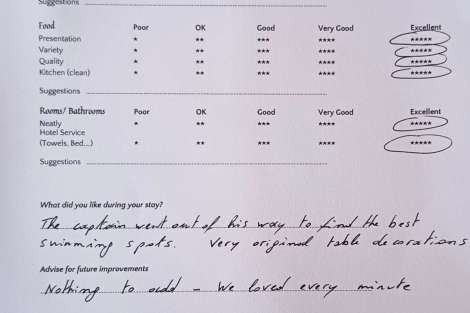 Suggestions
Food Poor OK Good Very Good Excellent
Presentation * ** *** **** *****
Variety * ** *** **** *****
Quality * ** *** **** *****
Kitchen (clean) * ** *** **** *****
Suggestions
Rooms/ Bathrooms Poor OK Good Very Good Excellent
Neatly * ** *** **** *****
Hotel Service
(Towels, Bed...) * ** *** **** *****
Suggestions
What did you like during your stay?
The captain went out of his way to find the best
swimming spots. Very original table decorations
Advise for future improvements
Nothing to add - We loved every minute